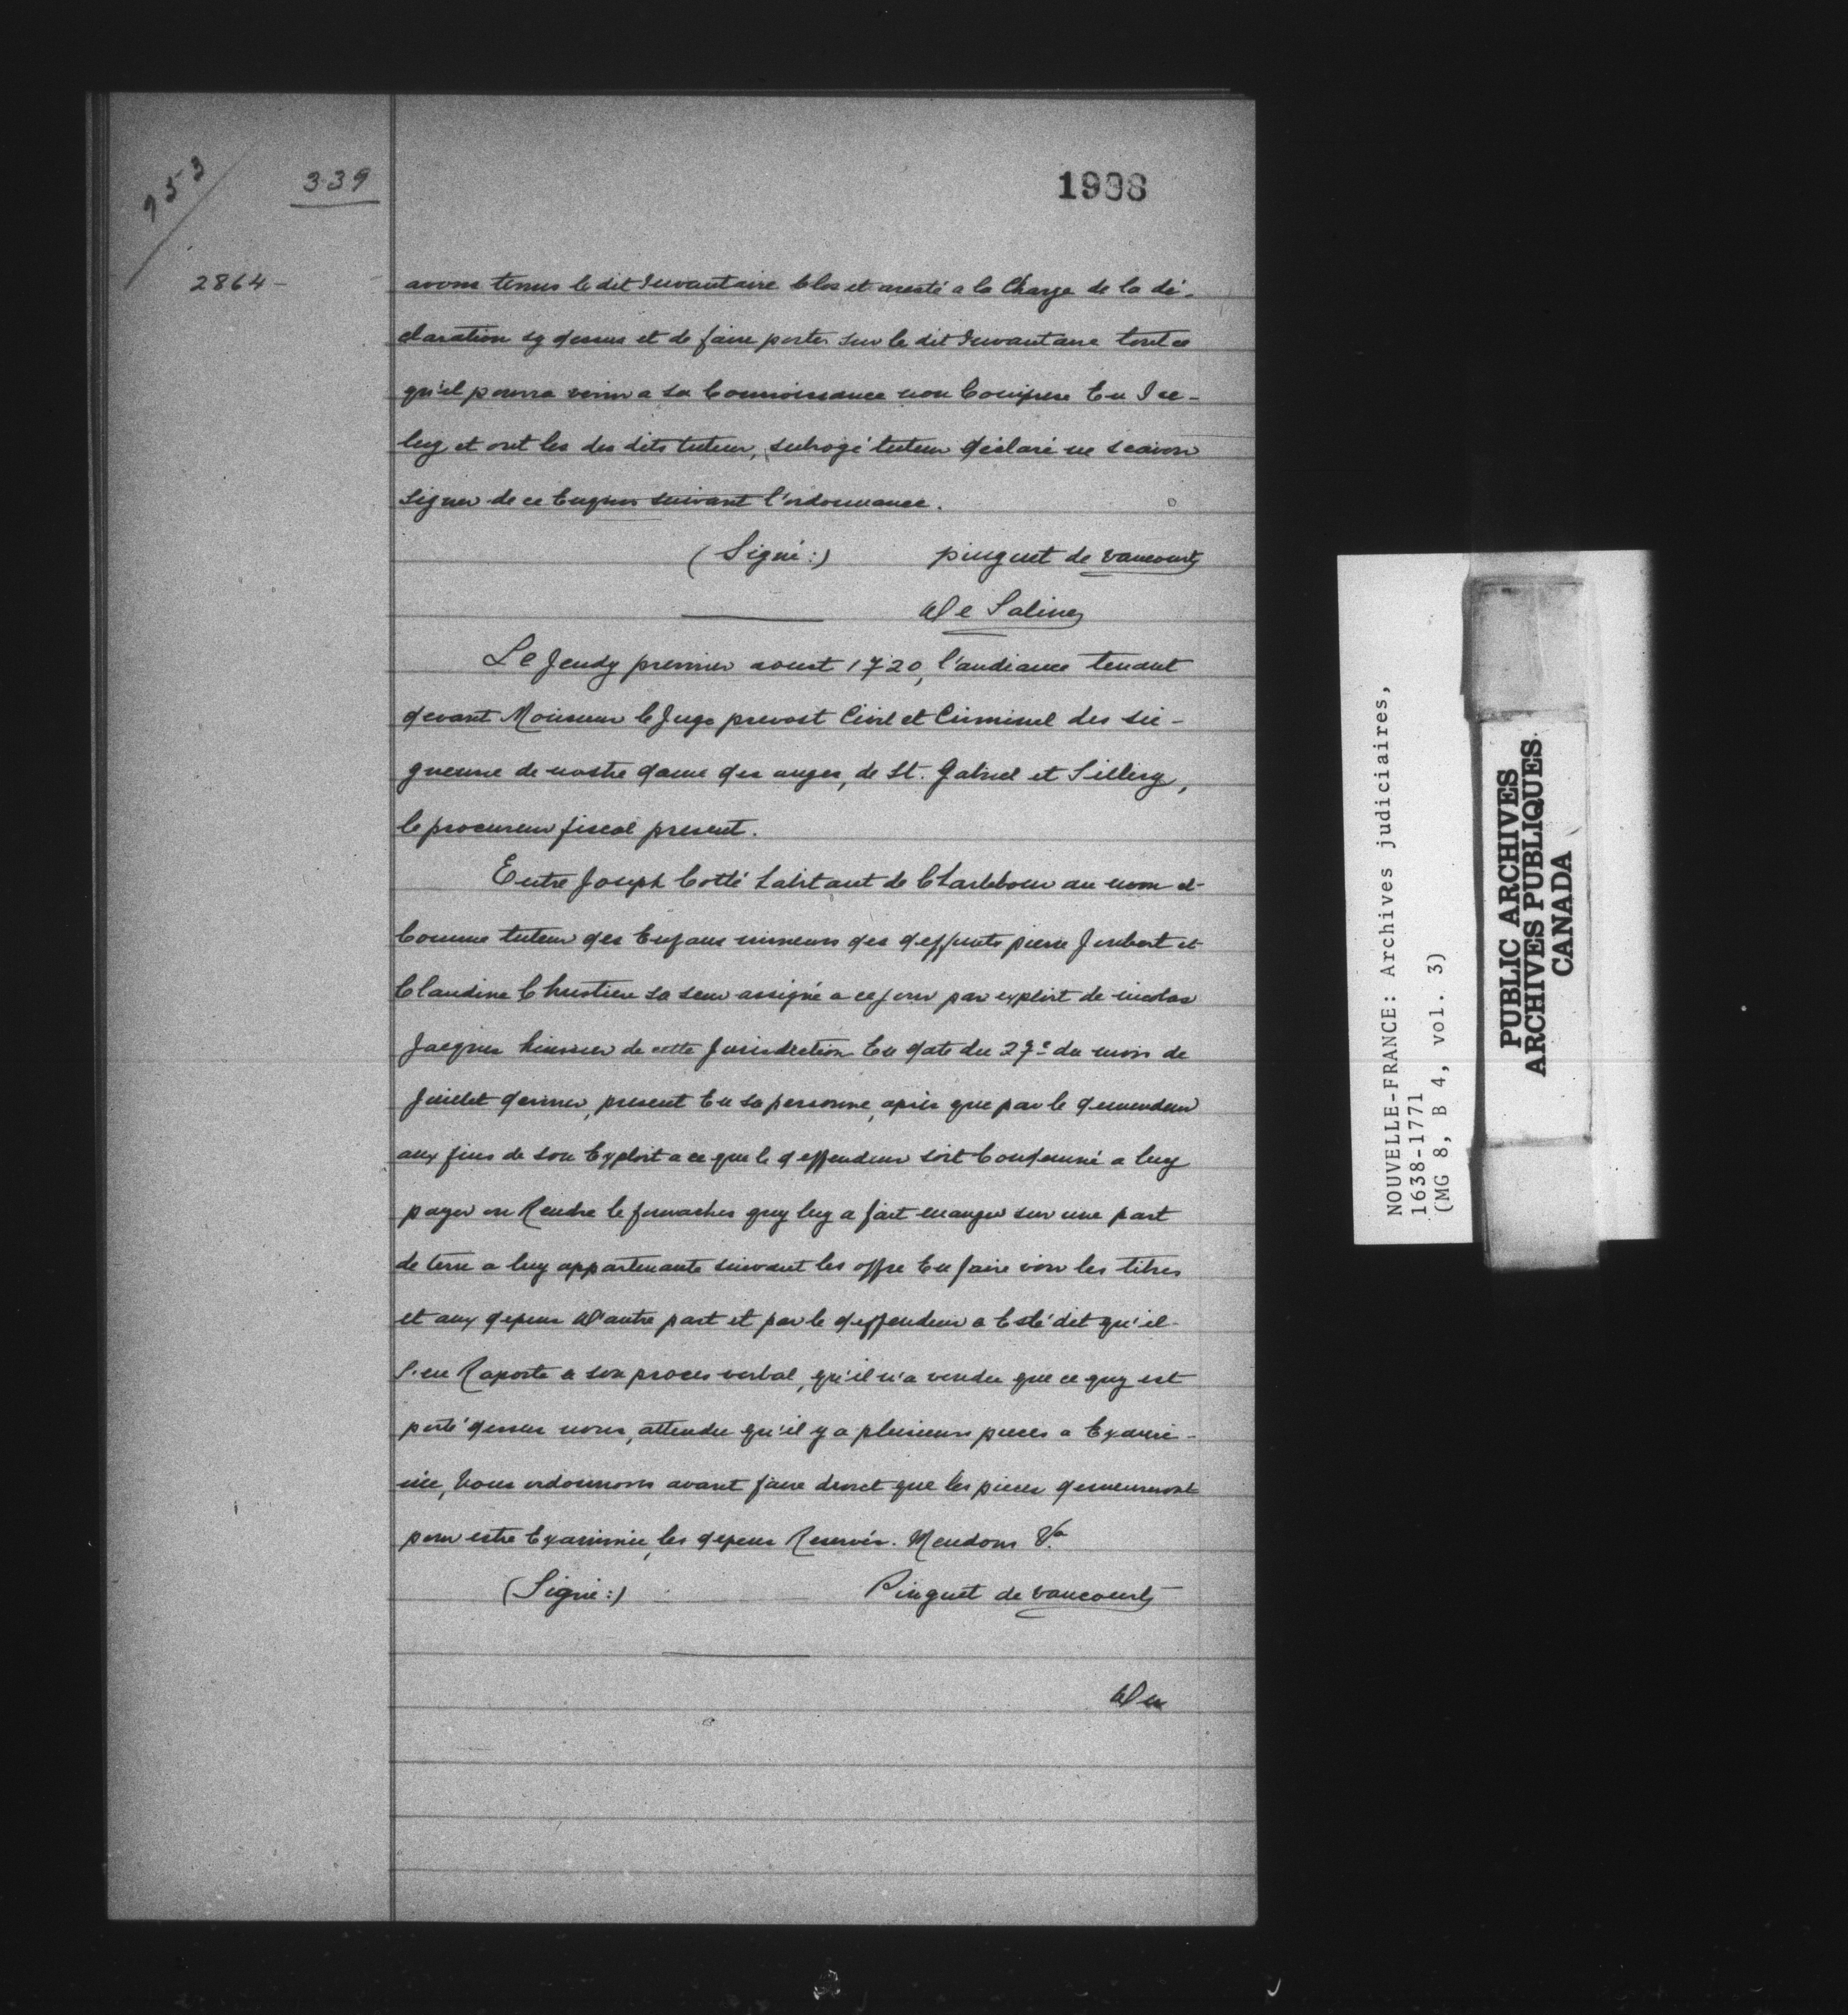 953
339
1998
2864-
avons tenus le dit Invantaire Clos et aresté a la Charge de la dé-
claration cy dessus et de faire porter sur le dit Invantaire tout ce
qu'il pourra venir a sa Connoissance non Comprise En Ice-
luy et ont les des dits tuteur, subrogé tuteur déclaré ne scavoir
signer de ce Enquis suivant l'ordonnance.
(Signé:) pinguet de vaucourt
De Saline
Le Jeudy premier aoust 1720, l'audiance tenant
devant Monsieur le Juge prevost Civil et Criminel des sei-
gneurie de nostre dame des anges, de St. Gabriel et Sillery,
le procureur fiscal present.
Entre Joseph Cotté habitant de Charlebour au nom et
Comme tuteur des Enfans mineurs des deffunts pierre Joubert et
Claudine Chrestien sa seur assigné a ce jour par exploit de nicolas
Jacques huissier de cette Jurisdiction En date du 27e du mois de
Juillet dernier, present En sa personne, après que par le demendeur
aux fins de son Exploit a ce que le deffendeur soit Condemné a luy
payer ou Rendre le fourraches quy luy a fait manger sur une part
de terre a luy appartenante suivant les offre En faire voir les titres
et aux depens D'autre part et par le deffendeur a Esté dit qu'il
S'en Raporte a son proces verbal, qu'il n'a vendu que ce quy est
porté dessus nous, attendu qu'il y a plusieurs pieces a Exami-
née, Nous ordonnons avant faire droict que les pieces demeureront
pour estre Examinée, les depens Reservés. Mendons &a
(Signé:) Pinguet de vaucourt
Du
NOUVELLE-FRANCE: Archives judiciaires,
1638-1771
(MG 8, B 4, vol. 3)
PUBLIC ARCHIVES
ARCHIVES PUBLIQUES
CANADA